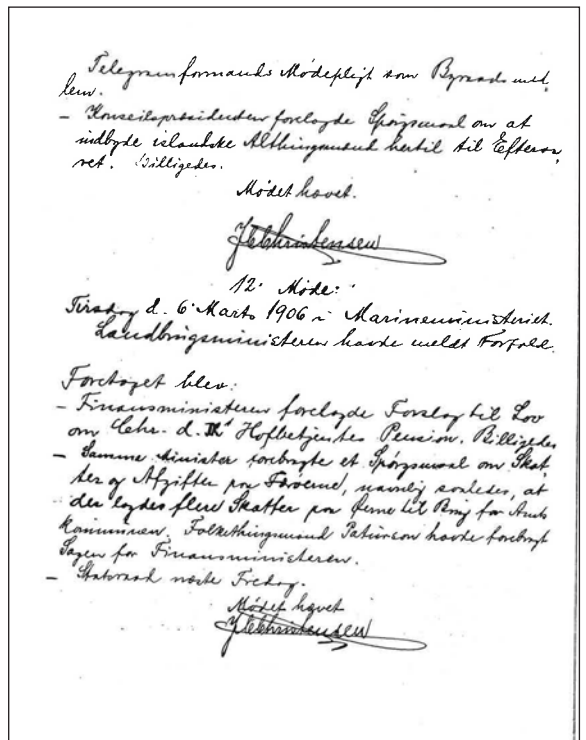 Telegramformands Mødepligt som Byraadsmed-
lem.
- Konseilspræsidenten forelagde Spørgsmaal om at
indbyde islandske Althingmænd hertil til Efteraa-
ret. Billigedes.
Mødet hævet.
JCChristensen
12' Møde:
Tirsdag d. 6' Marts 1906 i Marineministeriet.
Landbrugsministeren havde meldt Forfald.
Foretaget blev:
- Finansministeren forelagde Forslag til Lov
om Chr. d. IX' Hofbetjentes Pension. Billigedes
- Samme Minister forebragte et Spørgsmaal om Skat-
ter og Afgifter paa Færøerne, navnlig saaledes, at
der lagdes flere Skatter paa Øerne til Brug for Amts
Kommunen. Folkethingsmand Patursson havde forebragt
Sagen for Finansministeren.
- Statsraad næste Fredag.
Mødet hævet
JCChristensen